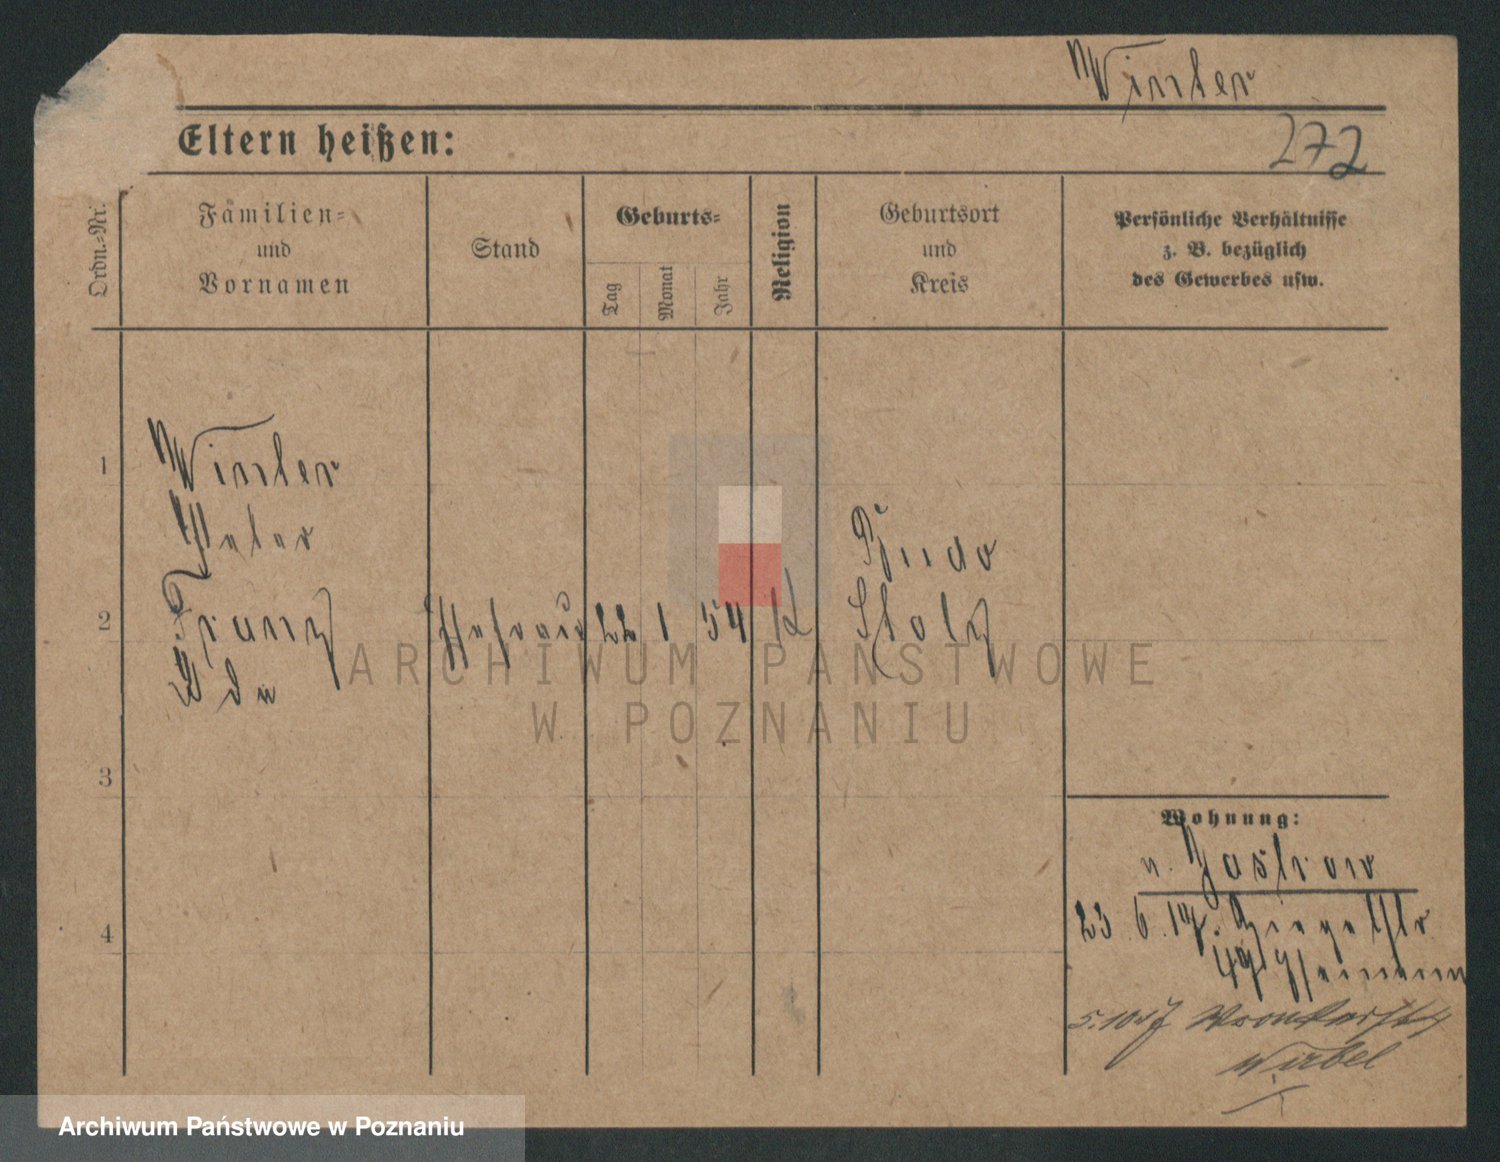 Winter
272
Eltern heißen:
Ordn.-Nr.
Familien-
und
Vornamen
Stand
Geburts-
Tag
Monat
Jahr
Religion
Geburtsort
und
Kreis
Persönliche Verhältnisse
z. B. bezüglich
des Gewerbes usw.
1
Winter
Peter
Franz
2
22 1 54 K
Stolz
3
4
Wohnung:
v. Jastrow
23. 6. 17.
5.10.17 Wronkerstr
Wirbel
ARCHIWUM PAŃSTWOWE
W POZNANIU
Archiwum Państwowe w Poznaniu